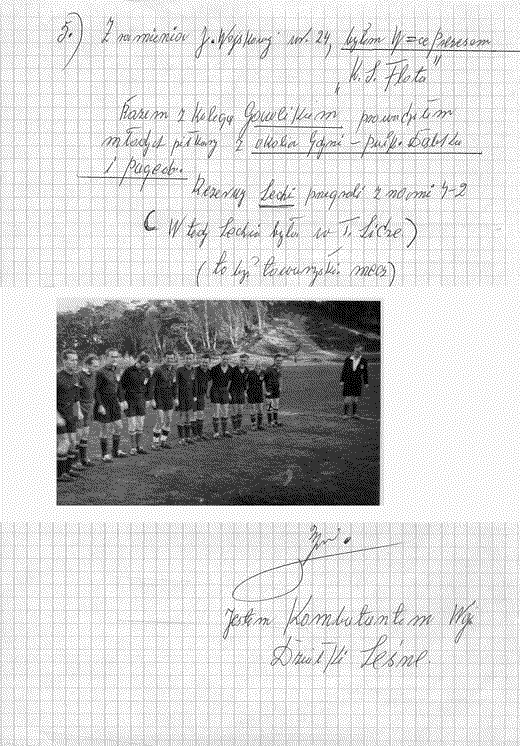 5.) Z ramienia J. Wojskowej nr. 24, byłem V=ce Prezesem
"K. S. Flota"
Razem z kolegą prowadziłem
młodych piłkarzy z okolic Gdyni -
i Pagedu.
Rezerwy Lechii przegrali z nami 4-2
( Wtedy Lechia była w I. Lidze.)
( to był towarzyski mecz)
Jestem Kombatantem Wojny
Leśne.